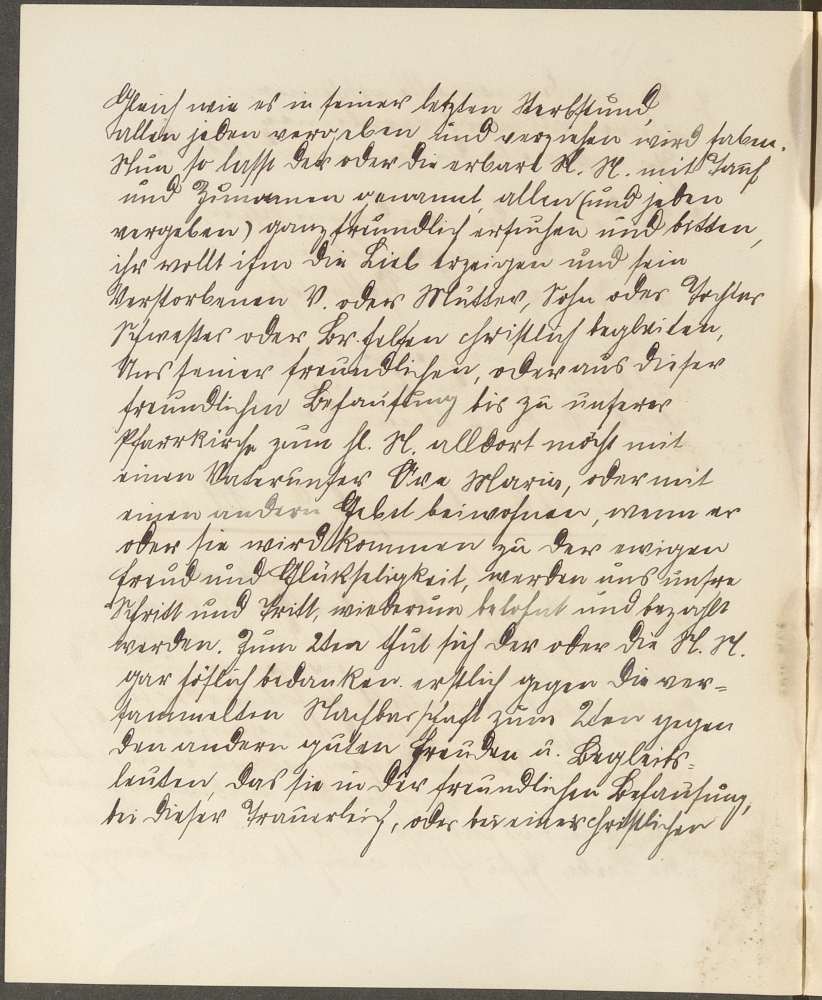 Gleich wie es in seiner letzten Sterbstund,
allen jeden vergeben und verziehen wird haben.
Nun, so lasst der oder die erbare N. N. mit Tauf
und Zunamen genannt, allen (und jeden
vergeben) ganz freundlich ersuchen und bitten,
ihr wollt ihm die Lieb erzeigen und sein
Verstorbenen V. oder Mutter, Sohn oder Tochter
Schwester oder Br. helfen christlich begleiten,
Aus seiner freundlichen, oder aus dieser
freundlichen Behausung bis zu unserer
Pfarrkirche zum hl. N. alldort möcht mit
einen Vaterunser Ave Maria, oder mit
einen andern Gebet beiwohnen, wenn er
oder sie wird kommen zu der ewigen
Freud und Glükseligkeit, werden uns unsre
Schritt und Tritt, wiederum belohnt und bezahlt
werden. Zum 2ten thut sich der oder die N. N.
gar höflich bedanken. erstlich gegen die ver=
sammelten Nachbarschaft zum 2ten gegen
den andern guten Freuden u. Begleits=
leuten, das sie in der freundlichen Behausung,
bei dieser Trauerleich, oder bei einer christlichen